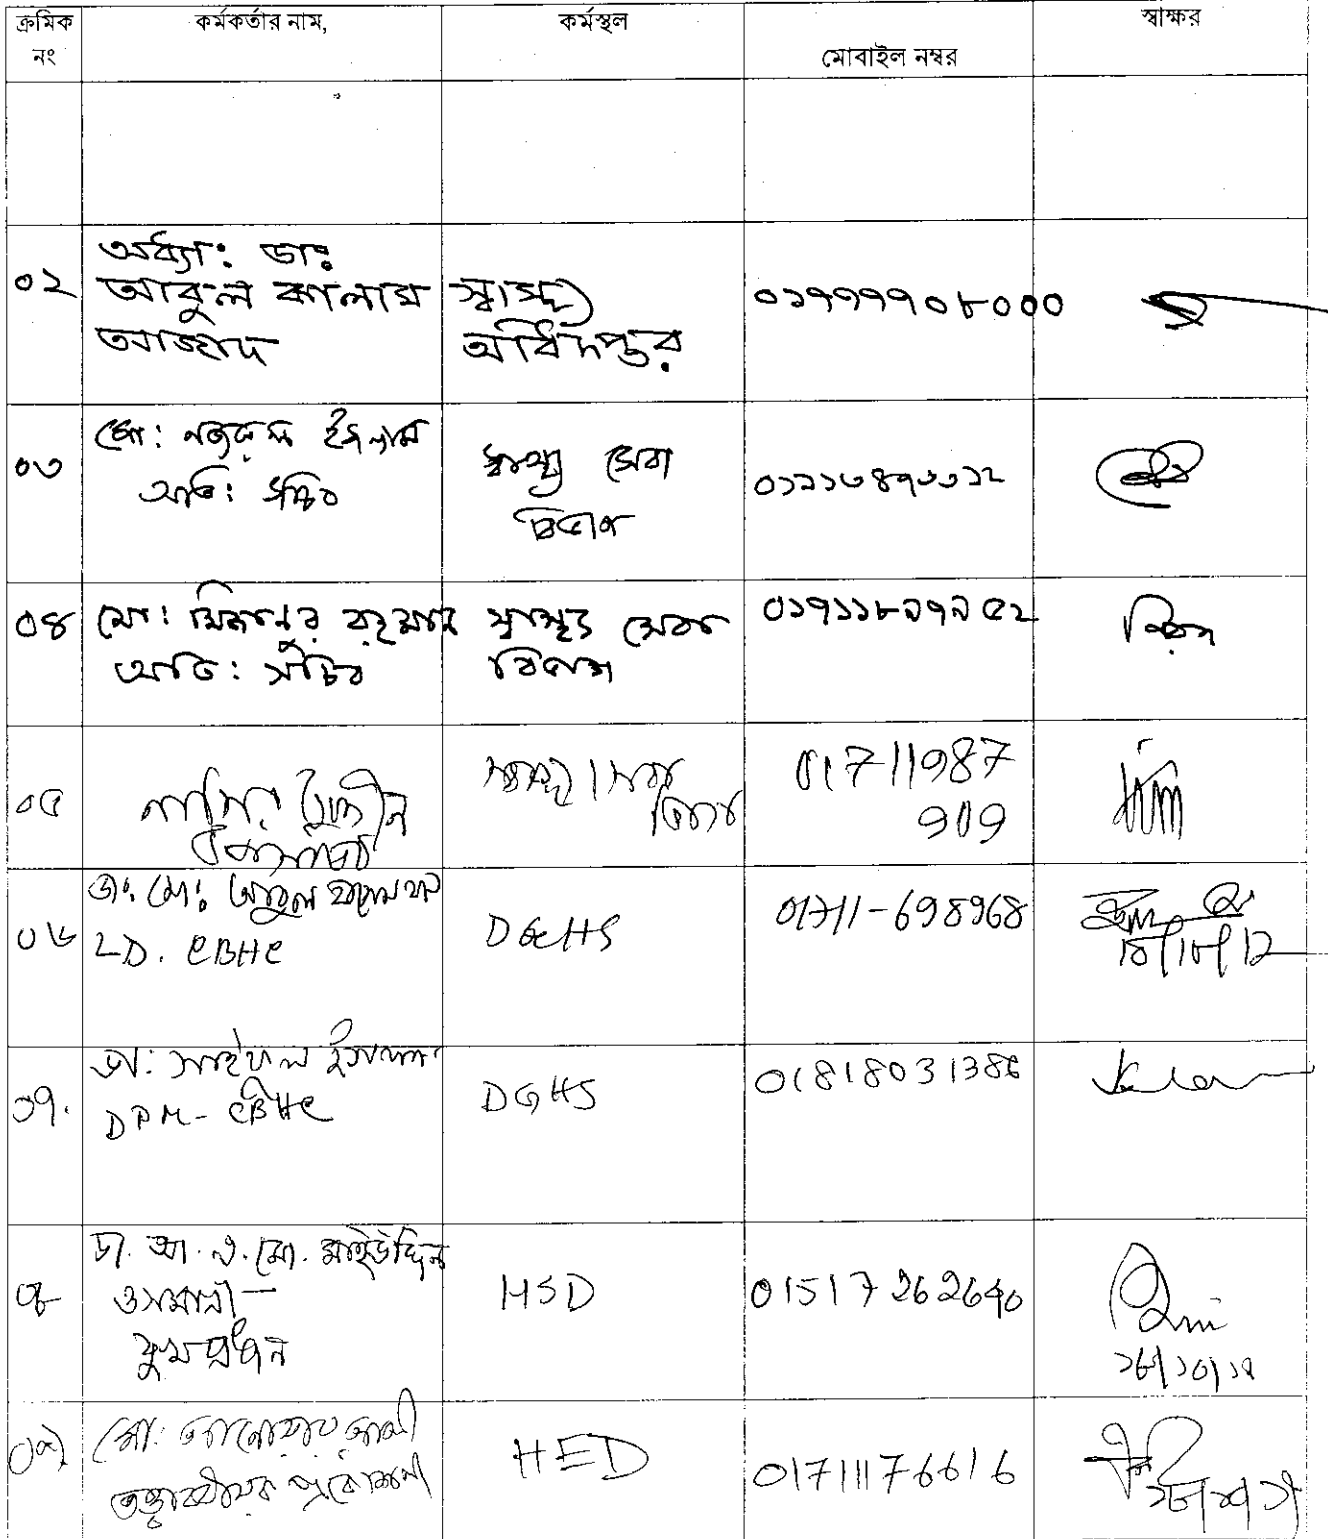 ক্রমিক নং
কর্মকর্তার নাম,
কর্মস্থল
মোবাইল নম্বর
স্বাক্ষর
০২
অধ্যা: ডাঃ
আবুল কালাম
আজাদ
স্বাস্থ্য
অধিদপ্তর
০১৭৭৭৭০৮০০০
০৩
মো: নজরুল ইসলাম
অতি: সচিব
স্বাস্থ্য সেবা
বিভাগ
০৪
মো: মিজানুর রহমান
অতি: সচিব
স্বাস্থ্য সেবা
বিভাগ
০১৭১১৮২৭২৫২
০৫
01711987
909
০৬
ডা: মো: আবুল হাসেম খান
LD. CBHC
DGHS
01711-698968
০৭.
ডা: সাইফুল ইসলাম
DPM- CBHC
DGHS
01818031386
০৮
ডা. আ. এ. মো. মহিউদ্দিন
ওসমানী
যুগ্মপ্রধান
HSD
01517262640
০৯
মো: আনোয়ার আলী
তত্ত্বাবধায়ক প্রকৌশলী
HED
01711176616